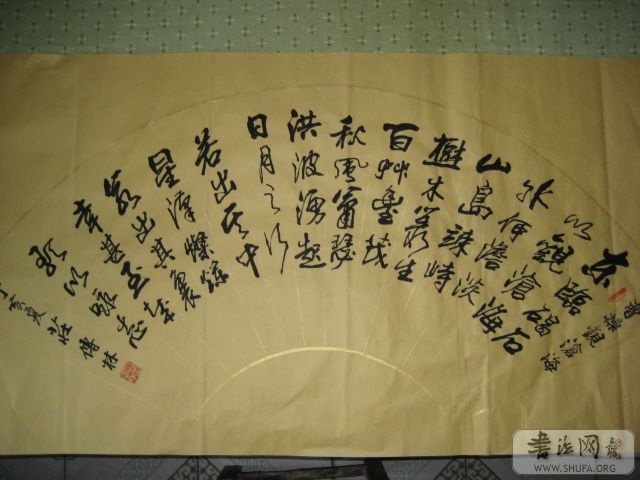 曹操觀滄海
东臨碣石
以觀滄海
水何澹淡
山島竦峙
樹木叢生
百艸豐茂
秋風蕭瑟
洪波湧起
日月之行
若出其中
星漢燦爛
若出其裏
幸甚至哉
歌以詠志
丁亥夏 莊傳林
书法网
WWW.SHUFA.ORG